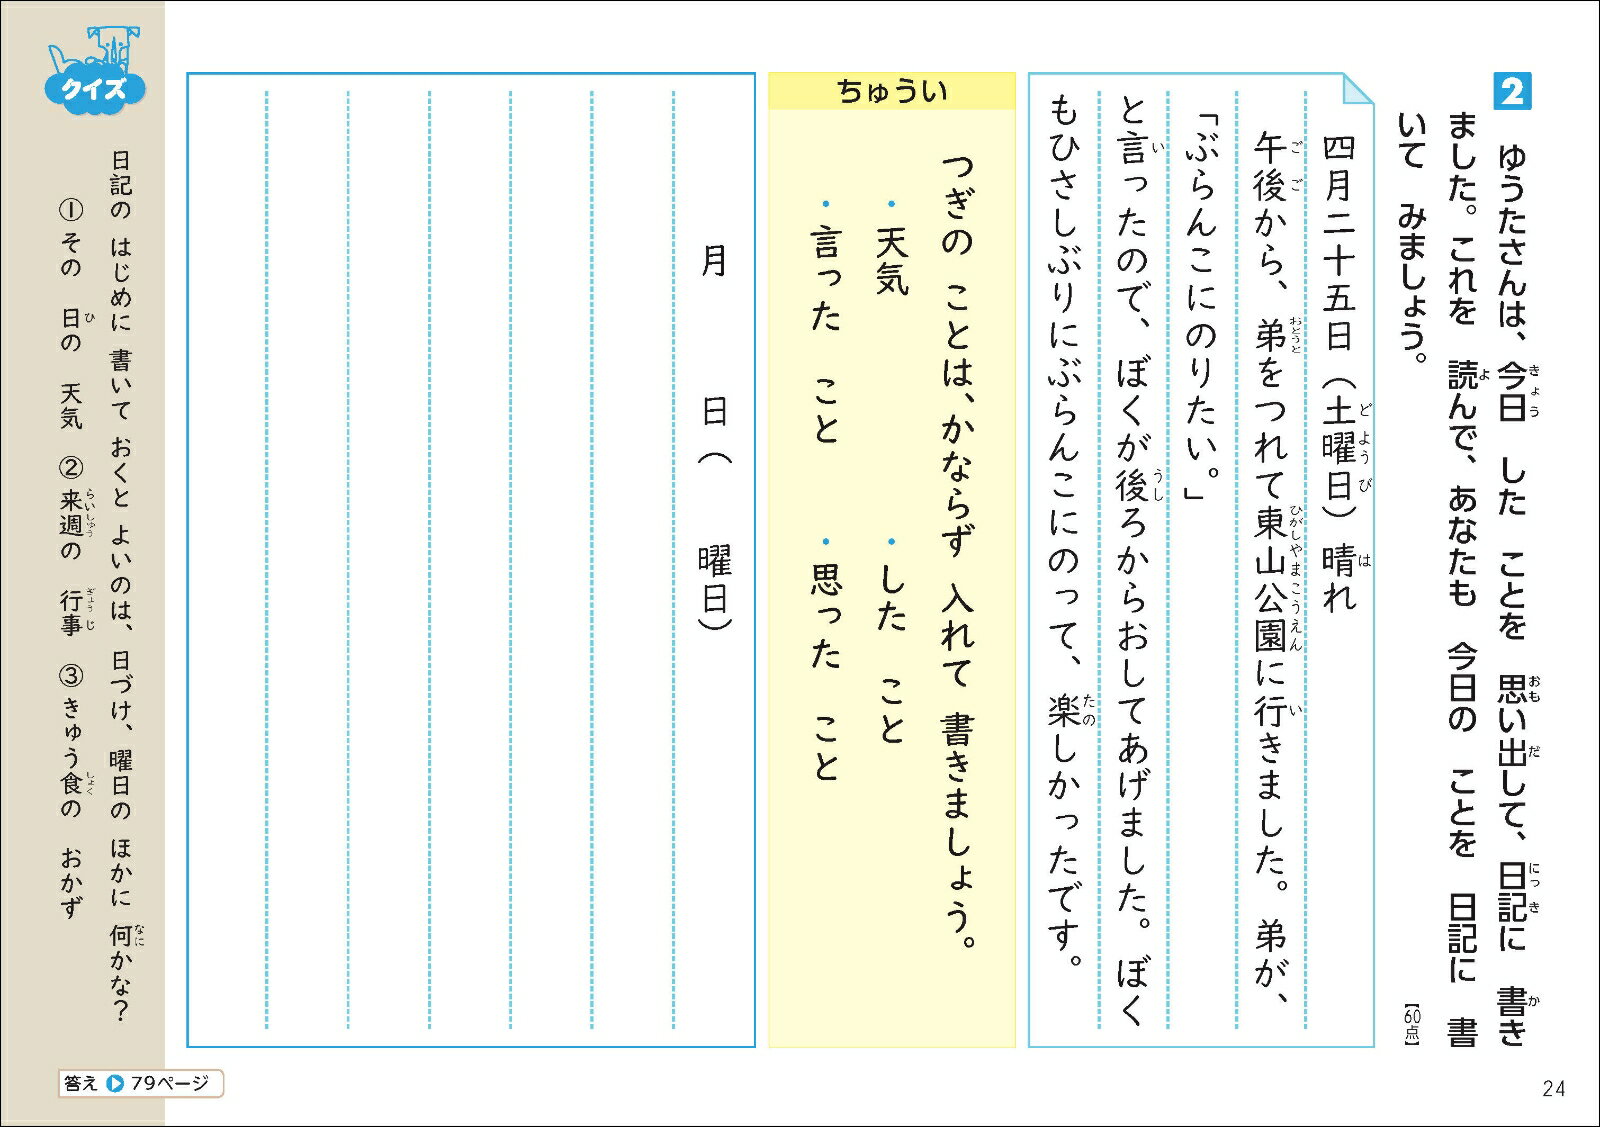 2
ゆうたさんは、今日 した ことを 思い出して、日記に 書き
ました。これを 読んで、あなたも 今日の ことを 日記に 書
いて みましょう。
【60点】
四月二十五日(土曜日) 晴れ
午後から、弟をつれて東山公園に行きました。弟が、
「ぶらんこにのりたい。」
と言ったので、ぼくが後ろからおしてあげました。ぼく
もひさしぶりにぶらんこにのって、楽しかったです。
ちゅうい
つぎの ことは、かならず 入れて 書きましょう。
・天気 ・した こと
・言った こと ・思った こと
月 日( 曜日)
クイズ
日記の はじめに 書いて おくと よいのは、日づけ、曜日の ほかに 何かな?
①その 日の 天気 ②来週の 行事 ③きゅう食の おかず
答え 79ページ
24